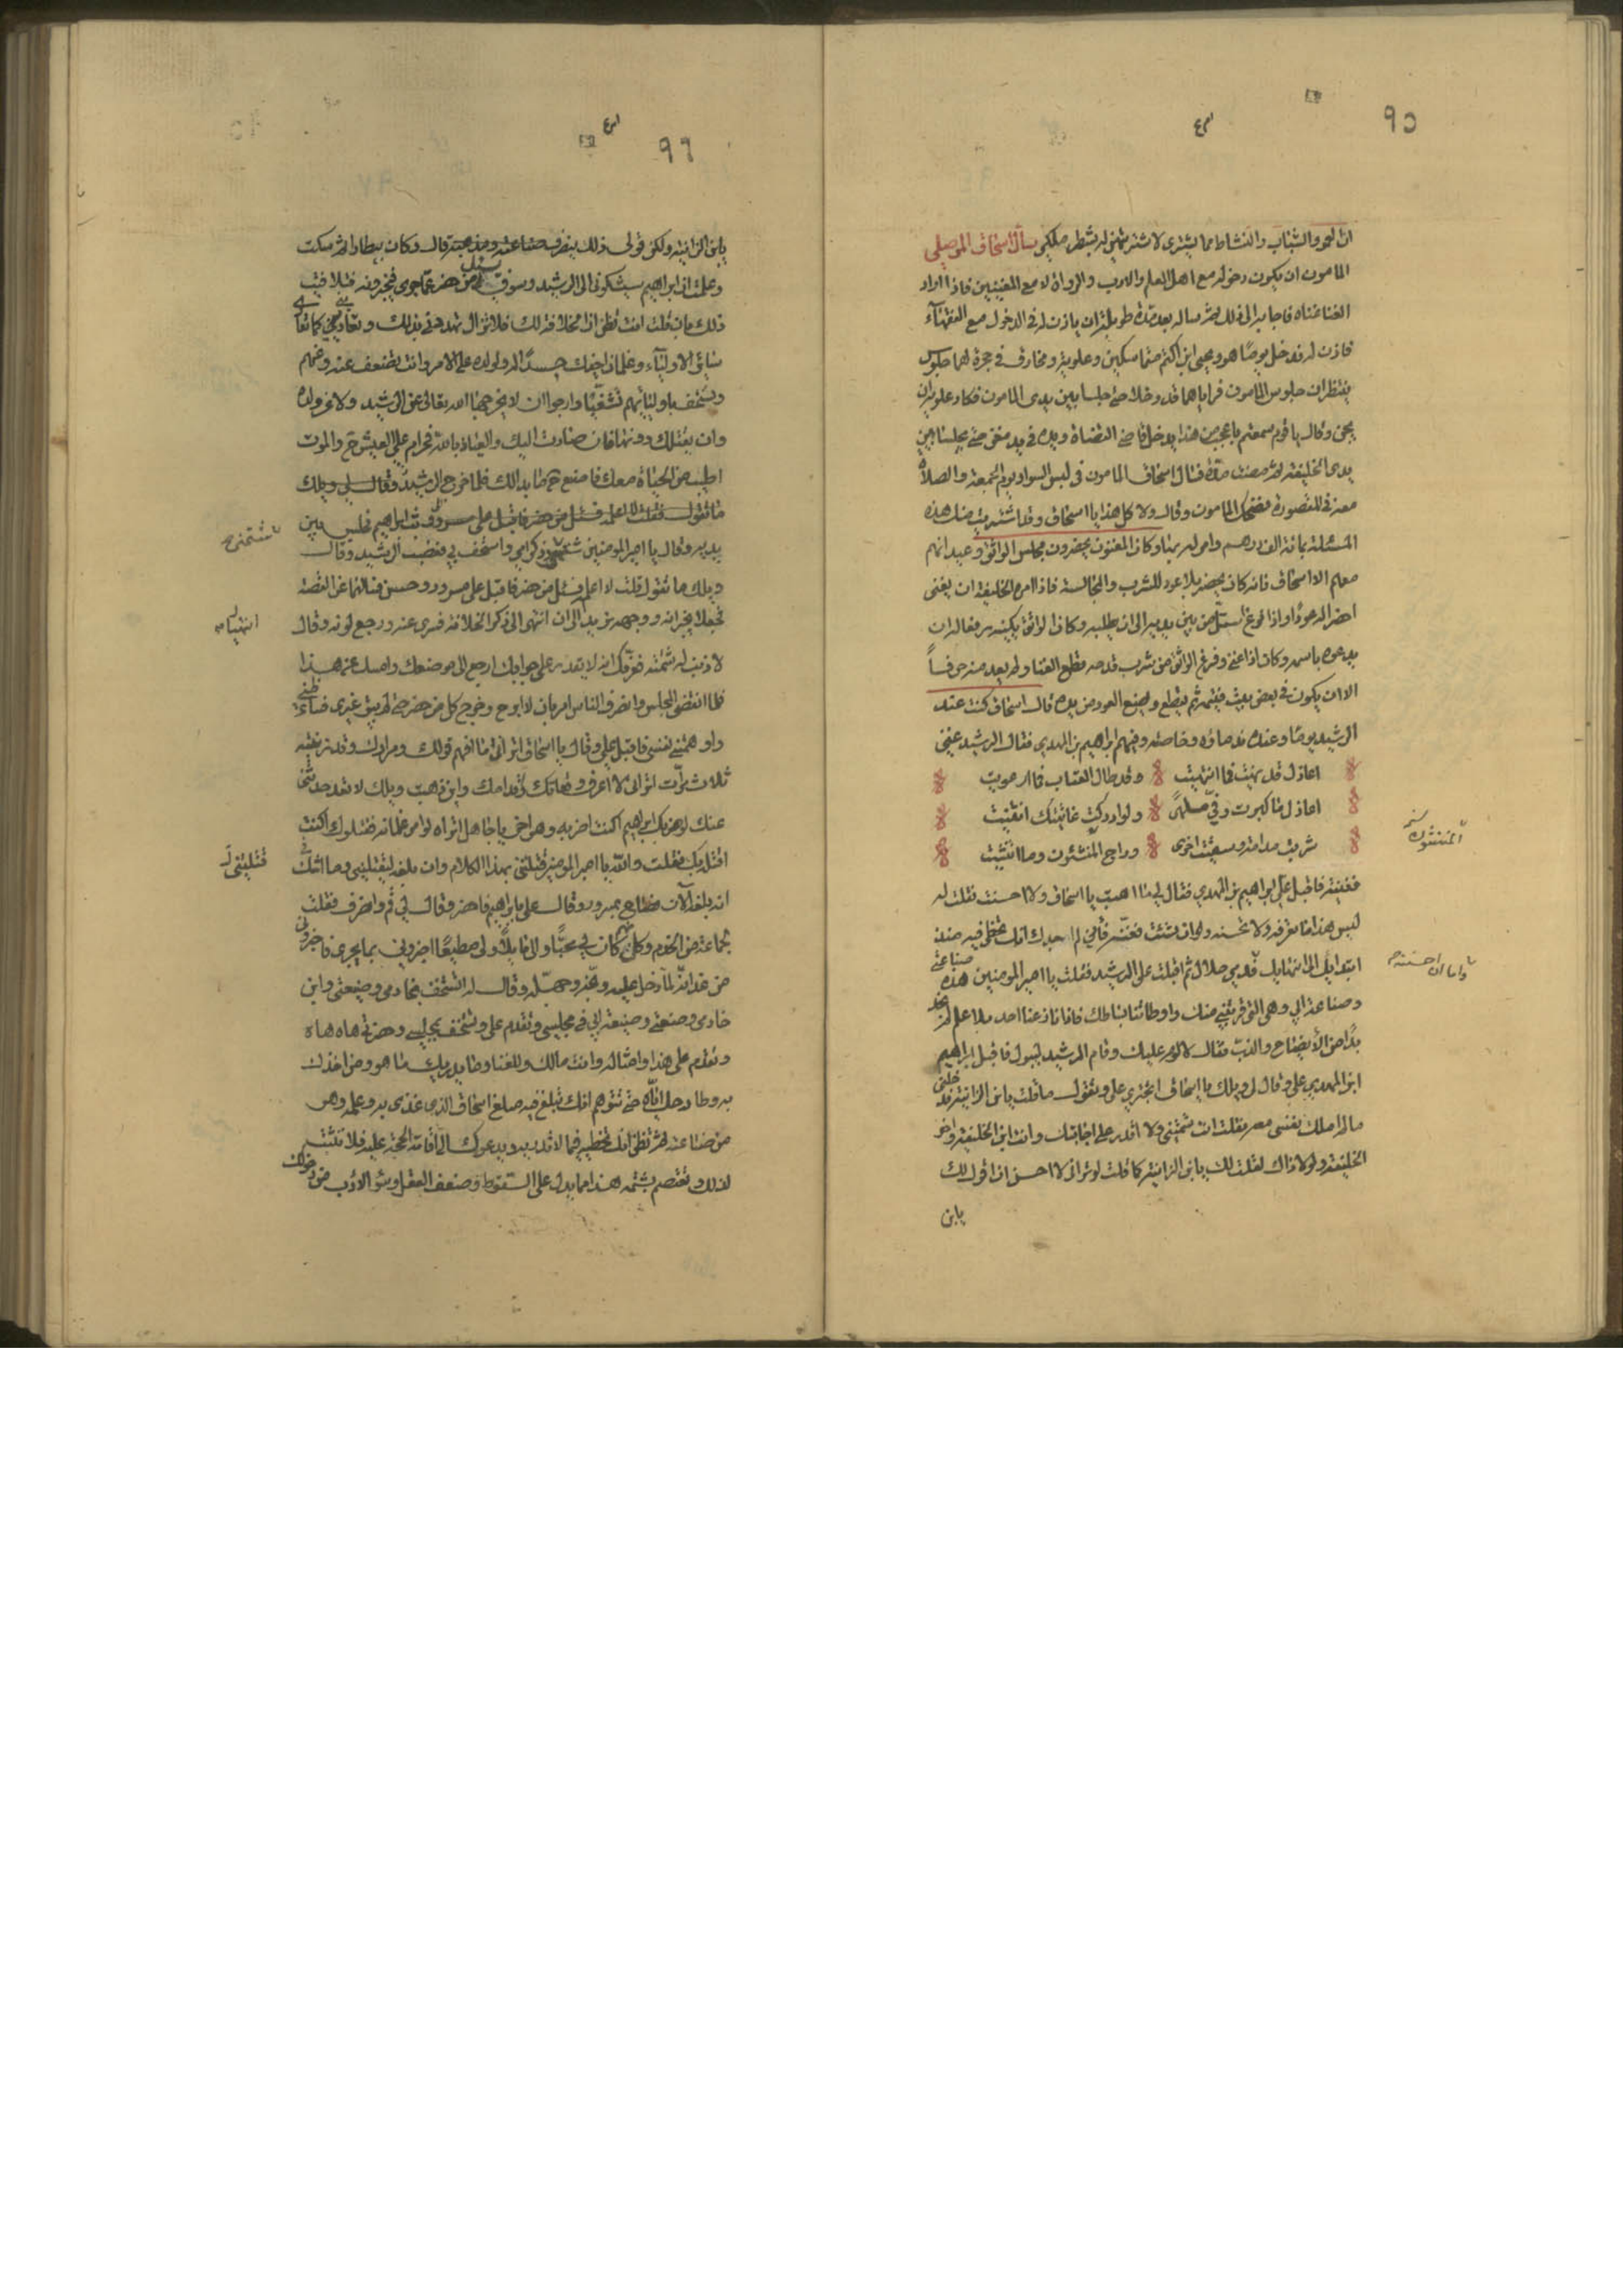 ٩٥
ان اللهو والشباب والنشاط مما يشترى لاشتريتهن له بشطر ملكي سأل اسحاق الموصلي
المامون ان يكون دخوله مع اهل العلم والادب والرواة لا مع المغنيين فاذا اراد
الغنا غناه فاجابه الى ذلك ثم ساله بعد مدة طويلة ان ياذن له في الدخول مع الفقهاء
فاذن له فدخل يوما هو ويحيى ابن اكثم متماسكين وعلويه ومخارق في حجرة لهما جلوس
ينتظران جلوس المامون فراياهما قد دخلا حتى جلسا بين يدى المامون فكاد علويه ان
يجن وقال يا قوم سمعتم باعجب من هذا يدخل قاضي القضاة ويده في يد مغن حتى يجلسا بين
يدى الخليفة ثم مضت مدة فسال اسحاق المامون في لبس السواد يوم الجمعة والصلاة
معه في المقصورة فضحك المامون وقال ولا كل هذا يا اسحاق وقد اشتريت منك هذه
المسئلة بمائة الف درهم وامر له بها وكان المغنون يحضرون مجلس الواثق وعيدانهم
معهم الا اسحاق فانه كان يحضر بلا عود للشرب والمجالسة فاذا امره الخليفة ان يغنى
احضر له عودا واذا فرغ استل من بين يديه الى ان يطلبه وكان الواثق يكنيه رفعا له ان
يدعوه باسمه وكان اذا غنى وفرغ الواثق من شرب قدحه قطع الغنا ولم يعد منه حرفا
الا ان يكون في بعض بيت فيتمه ثم يقطع ويضع العود من يده قال اسحاق كنت عند
الرشيد يوما وعنده ندماؤه وخاصته وفيهم ابراهيم بن المهدي فقال الرشيد غنني
اعاذل قد نهيت فما انتهيت وقد طال العتاب فما ارعويت
اعاذل ما كبرت وفي ملهى ولو ادركت غايتك انتهيت
شربت مدامة وسقيت اخرى وراح المنتشون وما انتشيت
فغنيته فاقبل علي ابراهيم بن المهدي فقال لي ما اصبت يا اسحاق ولا احسنت فقلت له
ليس هذا مما تعرفه ولا تحسنه وان شئت فغنه فان لم اجدك انك تخطى فيه منذ
ابتدايك الى انتهايك فدمي حلال ثم اقبلت على الرشيد فقلت يا امير المومنين هذه صناعتي
وصناعة ابي وهي التي قربتني منك واوطاتنا بساطك فاذا نازعنا احد بلا علم لم نجد
بدا من الايضاح والذب فقال لا لوم عليك وقام الرشيد ليبول فاقبل ابراهيم
ابن المهدي علي وقال لي ويلك يا اسحاق اتجترئ علي وتقول ما قلت يا ابن الزانية فدخلني
ما لم املك نفسى معه فقلت انت شتمتني ولا اقدر على اجابتك وانت ابن الخليفة واخو
الخليفة ولولا ذاك لقلت لك يا ابن الزانية كما قلت لي او ترانى لا احسن ان اقول لك
يا ابن
٩٦
يا ابن الزانية ولكن قولى ذلك ينصرف
وعلمت ان ابراهيم سيشكونى الى الرشيد وسوف يسئل من حضر عما جرى فيخبرونه فتلافيت
ذلك بان قلت انت تظن ان الخلافة لك فلا تزال تهددني بذلك وتعاديني كما تعادي
سائر الاولياء وغلمان اخيك حسدا له ولولده على الامر وانت تضعف عنه وعنهم
وتستخف باوليائهم تشفيا وارجو ان لا يخرجها الله تعالى عن الرشيد ولا عن ولده
وان يقتلك دونها فان صارت اليك والعياذ بالله فحرام علي العيش ح والموت
اطيب من الحياة معك فاصنع ح ما بدا لك فلما خرج الرشيد
بين
يديه وقال يا امير المومنين شتمني وذكر امي واستخف بي فغضب الرشيد وقال
ويلك ما تقول قلت لا اعلم فسل من حضر فاقبل على مسرور وحسين فسالهما عن القصة
فجعلا يخبرانه ووجهه يربد الى ان انتهوا الى ذكر الخلافة فسرى عنه ورجع لونه وقال
لا ذنب له شتمته فعرفك انه لا يقدر على جوابك ارجع الى موضعك وامسك عن هذا
فلما انقضى المجلس وانصرف الناس امر بان لا ابرح وخرج كل من حضر حتى لم يبق غيرى فساء ظني
واوهمتني نفسي فاقبل علي وقال يا اسحاق اتراني ما افهم قولك ومرادك
ثلاث مرات اترانى لا اعرف وقعاتك واقدامك واين ذهبت ويلك لا تعد حدثني
عنك لو ضربك ابراهيم اكنت اضربه وهو اخي يا جاهل اتراه لو امر غلمانه فقتلوك اكنت
اقتله بك فقلت والله يا امير المومنين قتلتني بهذا الكلام وان بلغه ليقتلني وما اشك في
انه بلغه الآن فصاح بمسرور وقال علي بابراهيم فاحضر وقال لي قم وانصرف فقلت
لجماعة من الخدم وكلهم كان لي محبا والي مايلا ولي مطيعا اخبروني بما يجرى فاخبروني
من غد انه لما دخل عليه وبخه وجهله وقال له اتستخف بخادمى وصنيعتى وابن
خادمى وصنيعتي وصنيعة ابي في مجلسي وتقدم علي وتستخف بمجلسي وحضرتى هاه هاه
وتقدم على هذا وامثاله وانت مالك وللغنا وما يدريك ما هو ومن اخذك
به وطارحك اياه حتى تتوهم انك تبلغ فيه مبلغ اسحاق الذى غذى به وعلمه وهو
من صناعته ثم تظن انك تخطيه فيما لا تدريه ويدعوك الى اقامة الحجة عليه فلا تثبت
لذلك وتعتصم بشتمه هذا مما يدل على السقوط وضعف العقل وسوء الادب من دخولك